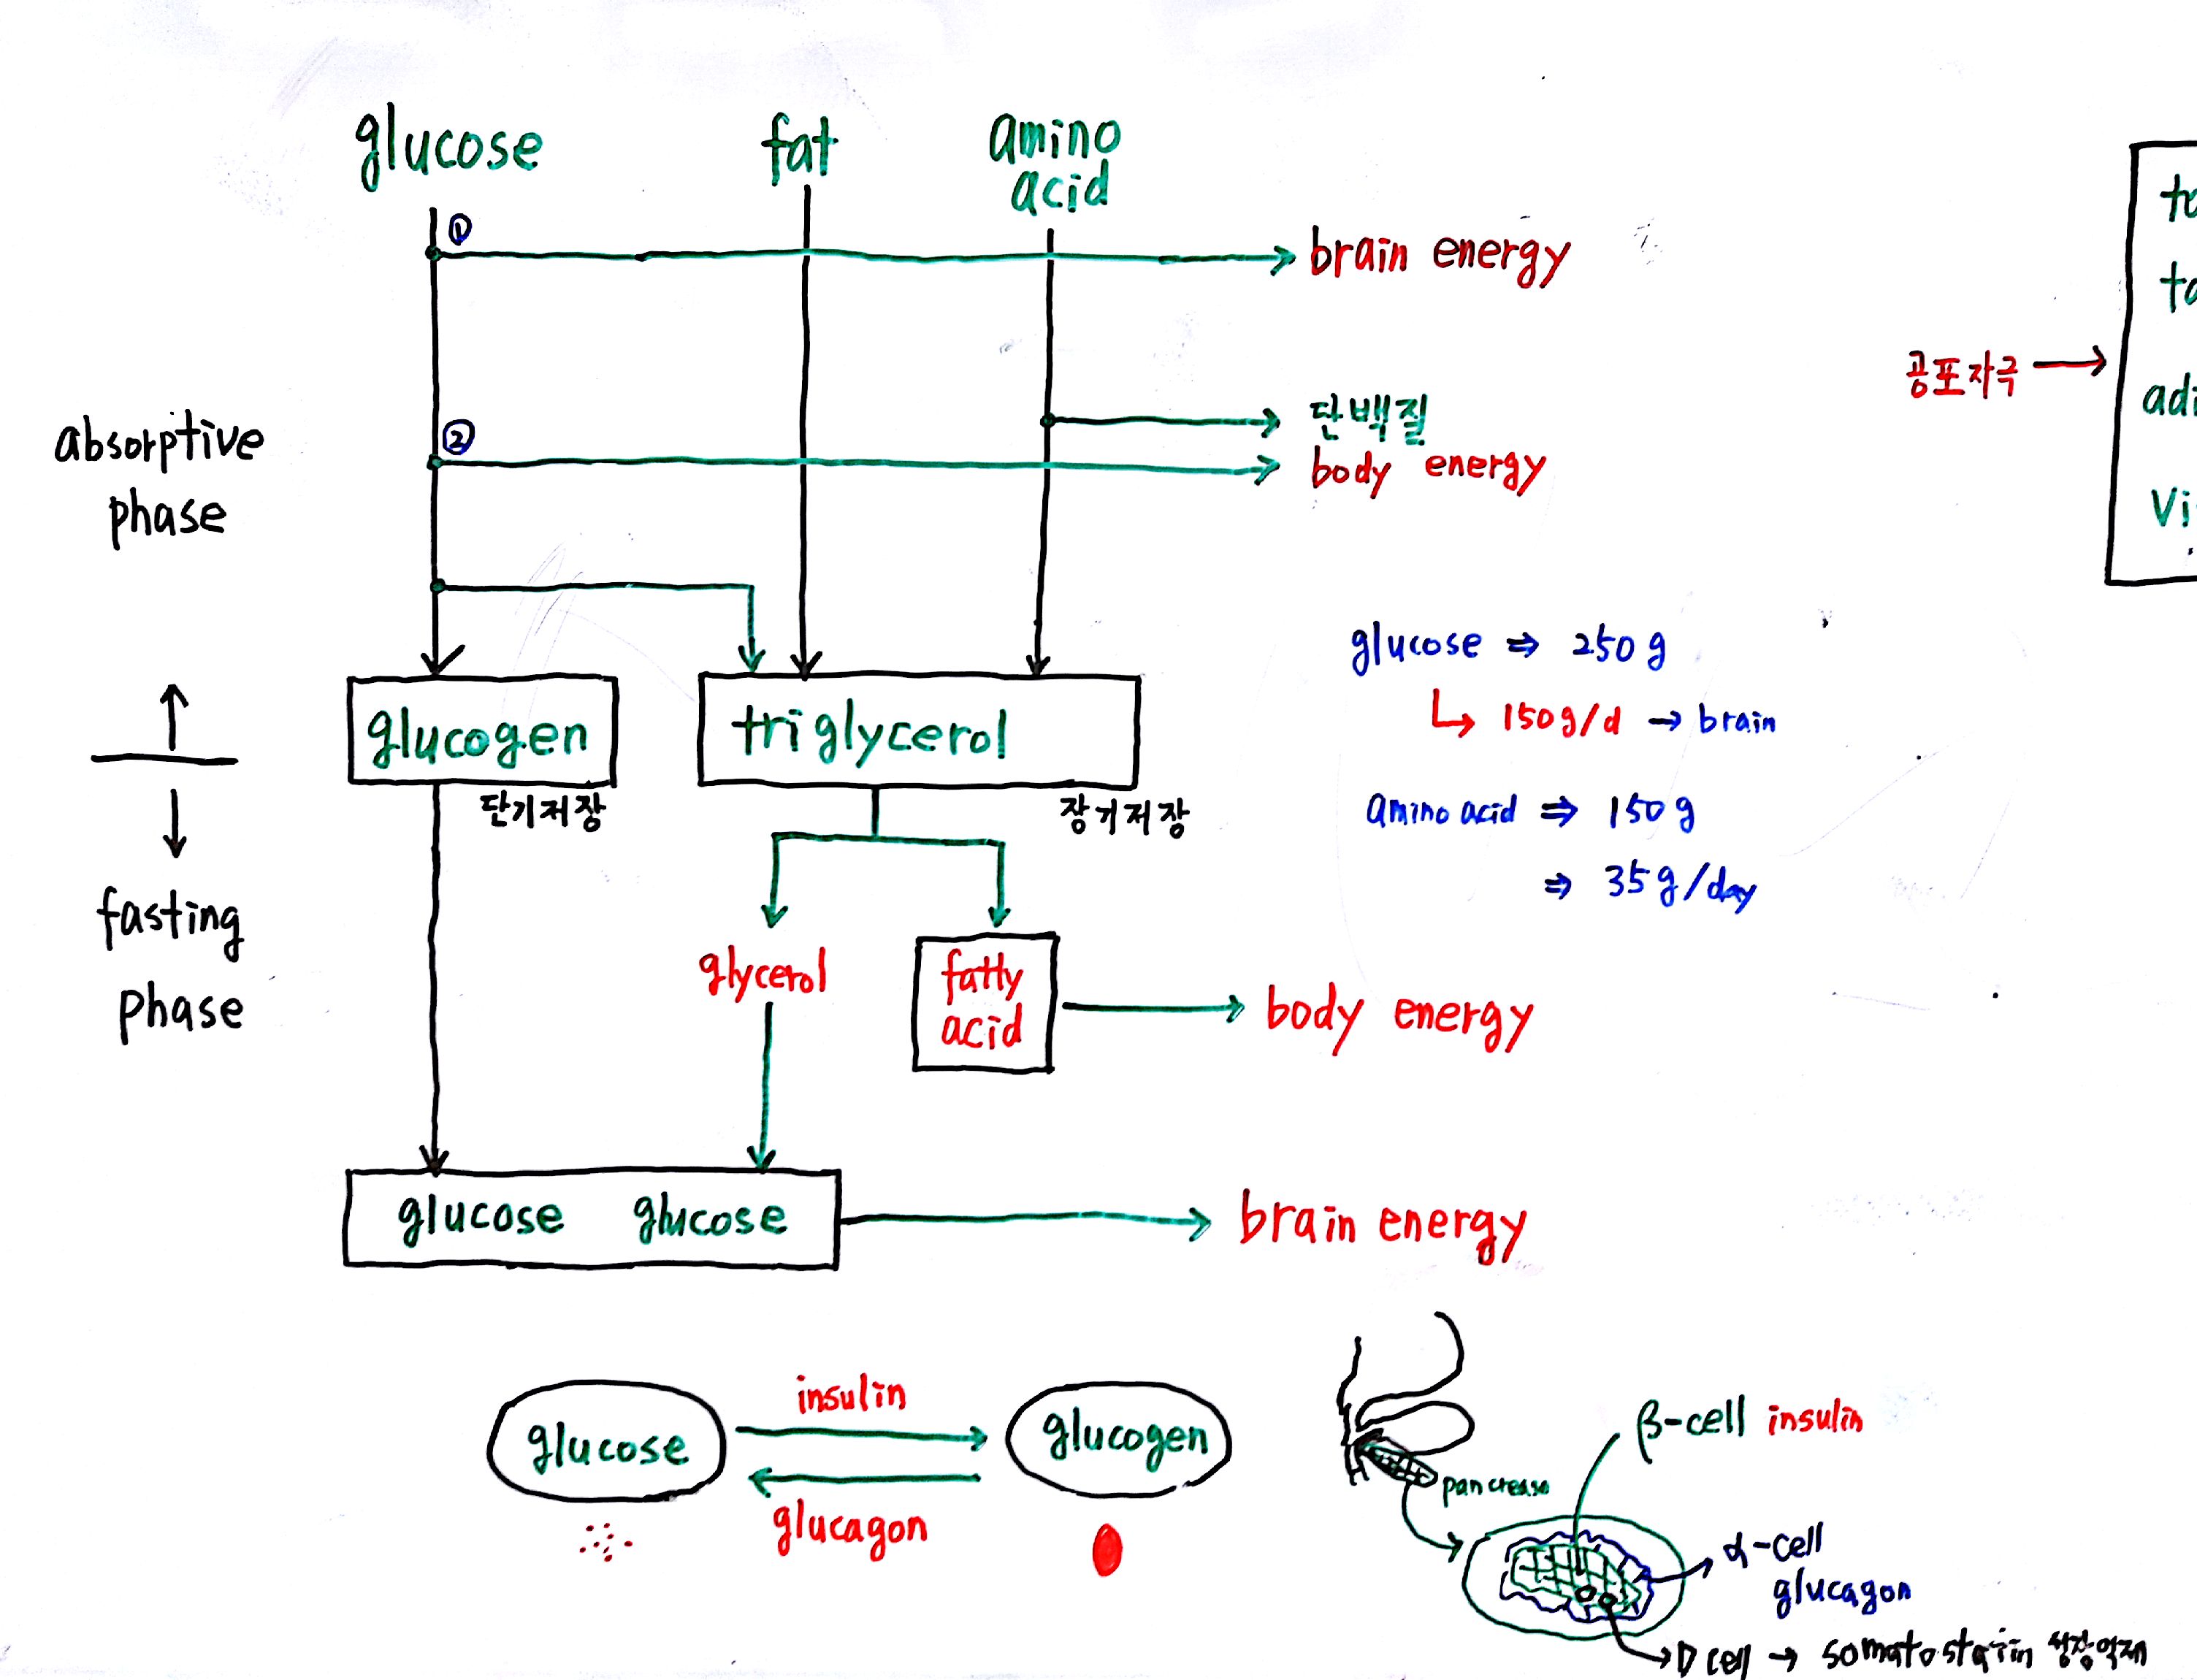 glucose
fat
amino
acid
①
brain energy
to
ta
공포자극
adi
Vi
단백질
②
body energy
absorptive
phase
glucose ⇒ 250g
↳ 150g/d → brain
amino acid ⇒ 150g
⇒ 35g/day
glucogen
triglycerol
단기저장
장기저장
fasting
phase
glycerol
fatty
acid
body energy
glucose glucose
brain energy
glucose
insulin
glucogen
glucagon
pancrease
β-cell insulin
α-cell
glucagon
D cell → somatostatin 성장억제